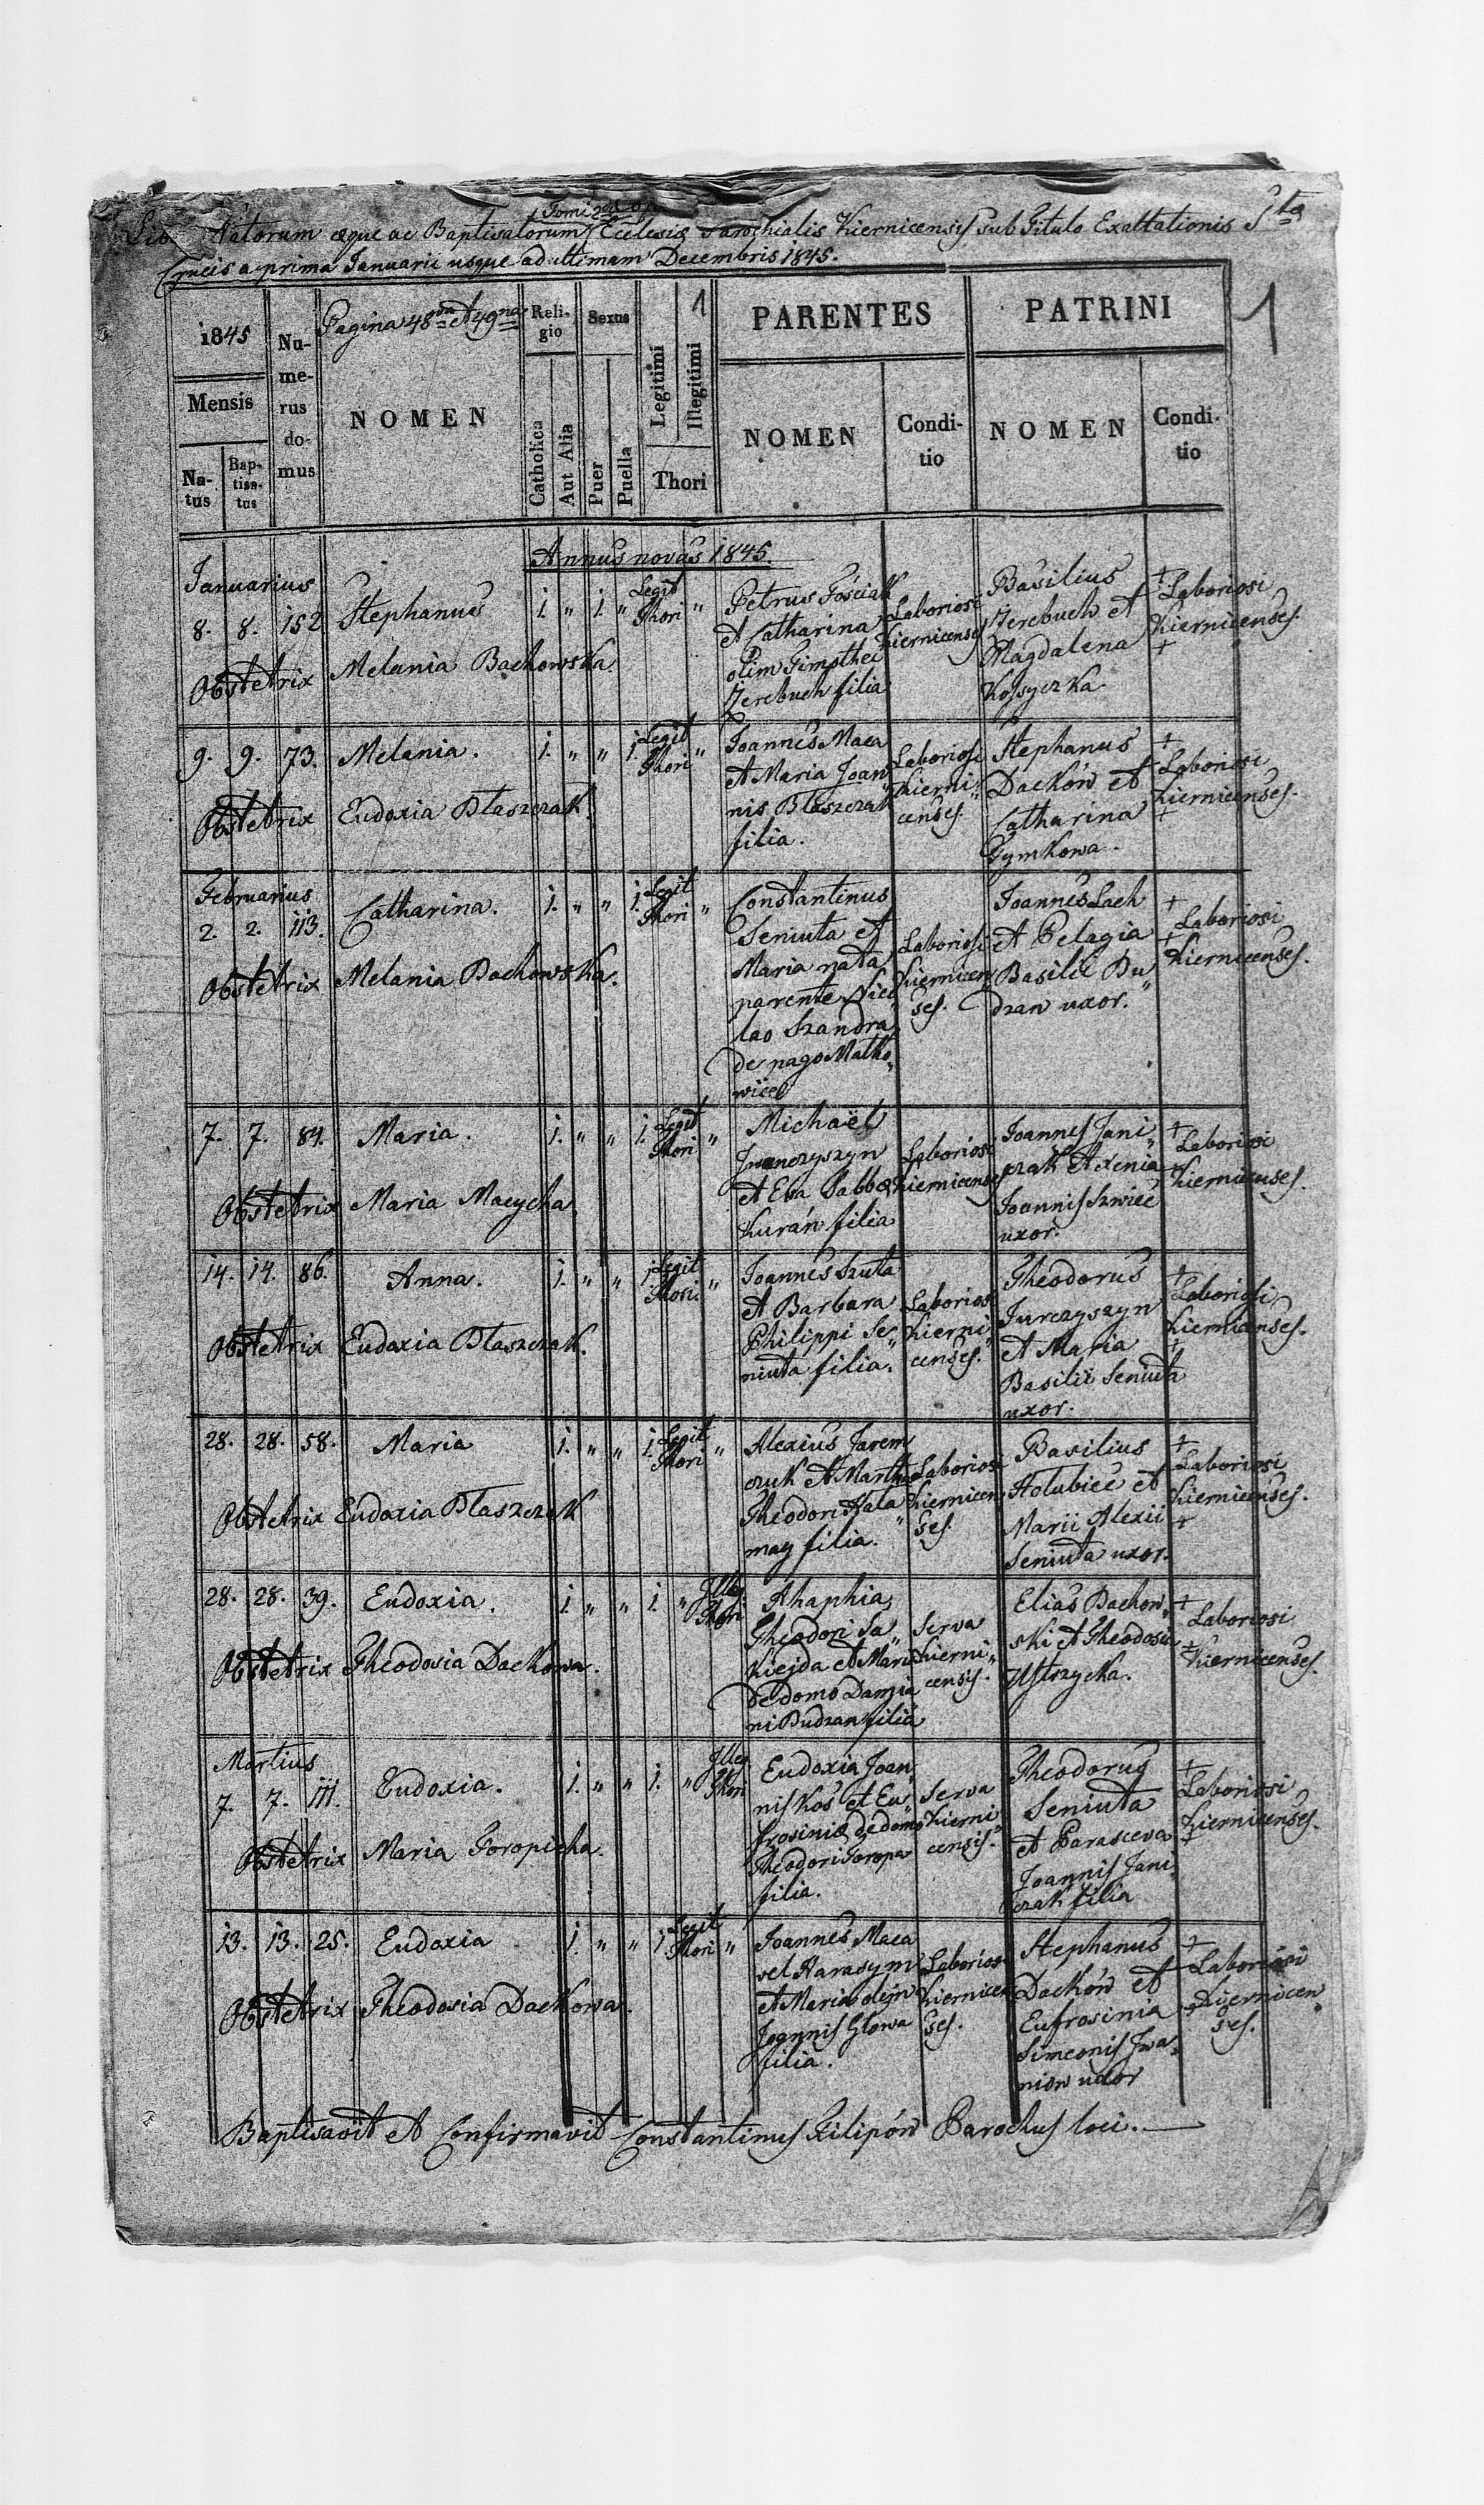 Lib Natorum æque ac Baptisatorum Ecclesiæ Parochialis Kiernicensis sub Titulo Exaltationis Stæ
Tomi 2di
Crucis a prima Januarii usque ad ultimam Decembris 1845.
1
1845
Mensis
Natus
Baptisatus
Numerus domus
Pagina 48va et 49na
NOMEN
Religio
Catholica
Aut Alia
Sexus
Puer
Puella
1
Legitimi
Illegitimi
Thori
PARENTES
NOMEN
Conditio
PATRINI
NOMEN
Conditio
Annus novus 1845.
Januarius
8. 8. 152 Stephanus 1. " 1. " Legit Thori "
Obstetrix Melania Bachowska.
Petrus Fościak
et Catharina
olim Timothei
Jerebuch filia
Laboriosi
Kiernicenses
Basilius
Jerebuch et
Magdalena
Kossyczka.
Laboriosi
Kiernicenses.
9. 9. 73. Melania. 1. " " 1. Legit Thori "
Obstetrix Eudoxia Błaszczak.
Joannes Maca
et Maria Joan
nis Błaszczak
filia.
Laboriosi
Kierni"
censes.
Stephanus
Dachów et
Catharina
Tymkowa.
Laboriosi
Kiernicenses.
Februarius
2. 2. 113. Catharina. 1. " " 1. Legit Thori "
Obstetrix Melania Bachowska.
Constantinus
Seniuta et
Maria nata
parente Nico
lao Szandra
de pago Matko"
wice
Laboriosi
Kiernicen
ses.
Joannes Lach
et Pelagia
Basilii Bu"
dzan uxor.
Laboriosi
Kiernicenses.
7. 7. 84. Maria. 1. " " 1. Legit Thori "
Obstetrix Maria Macycha.
Michaël
Iwanczyszyn
et Eva Sabbæ
Kurán filia
Laboriosi
Kiernicenses
Joannes Jani"
czak et Xenia
Joannis Szwiec
uxor.
Laboriosi
Kiernicenses.
14. 14. 86. Anna. 1. " " 1. Legit Thori. "
Obstetrix Eudoxia Błaszczak.
Joannes Szuta
et Barbara
Philippi Se"
niuta filia.
Laboriosi
Kierni"
censes.
Theodorus
Jurczyszyn
et Maria
Basilii Seniuta
uxor.
Laboriosi
Kiernicenses.
28. 28. 58. Maria 1. " " 1. Legit Thori "
Obstetrix Eudoxia Błaszczak
Alexius Jarem
czuk et Martha
Theodori Hała"
may filia.
Laboriosi
Kiernicen
ses.
Basilius
Hołubiec et
Marii Alexii
Seniuta uxor.
Laboriosi
Kiernicenses.
28. 28. 39. Eudoxia. 1. " " 1. " Illeg. Thori
Obstetrix Theodosia Dackowa.
Ahaphia
Theodori Sa"
kiejda et Mariæ
de domo Damia
ni Budzan filia
Serva
Kierni"
censis.
Elias Bachow"
ski et Theodosia
Ustrzycka.
Laboriosi
Kiernicenses.
Martius
7. 7. 111. Eudoxia. 1. " " 1. " Illeg. Thori
Obstetrix Maria Toropicha.
Eudoxia Joan"
nis Kos et Eu"
frosiniæ de domo
Theodori Toropa
filia.
Serva
Kierni"
censis.
Theodorus
Seniuta
et Parasceva
Joannis Jani"
czak filia
Laboriosi
Kiernicenses.
13. 13. 25. Eudoxia 1. " " 1. Legit Thori "
Obstetrix Theodosia Dackowa.
Joannes Maca
vel Harasym
et Maria olim
Joannis Głowa
filia.
Laboriosi
Kiernicen
ses.
Stephanus
Dachów et
Eufrosinia
Simeonis Iwa"
niow uxor
Laboriosi
Kiernicen"
ses.
Baptisavit et Confirmavit Constantinus Filipón Parochus loci.